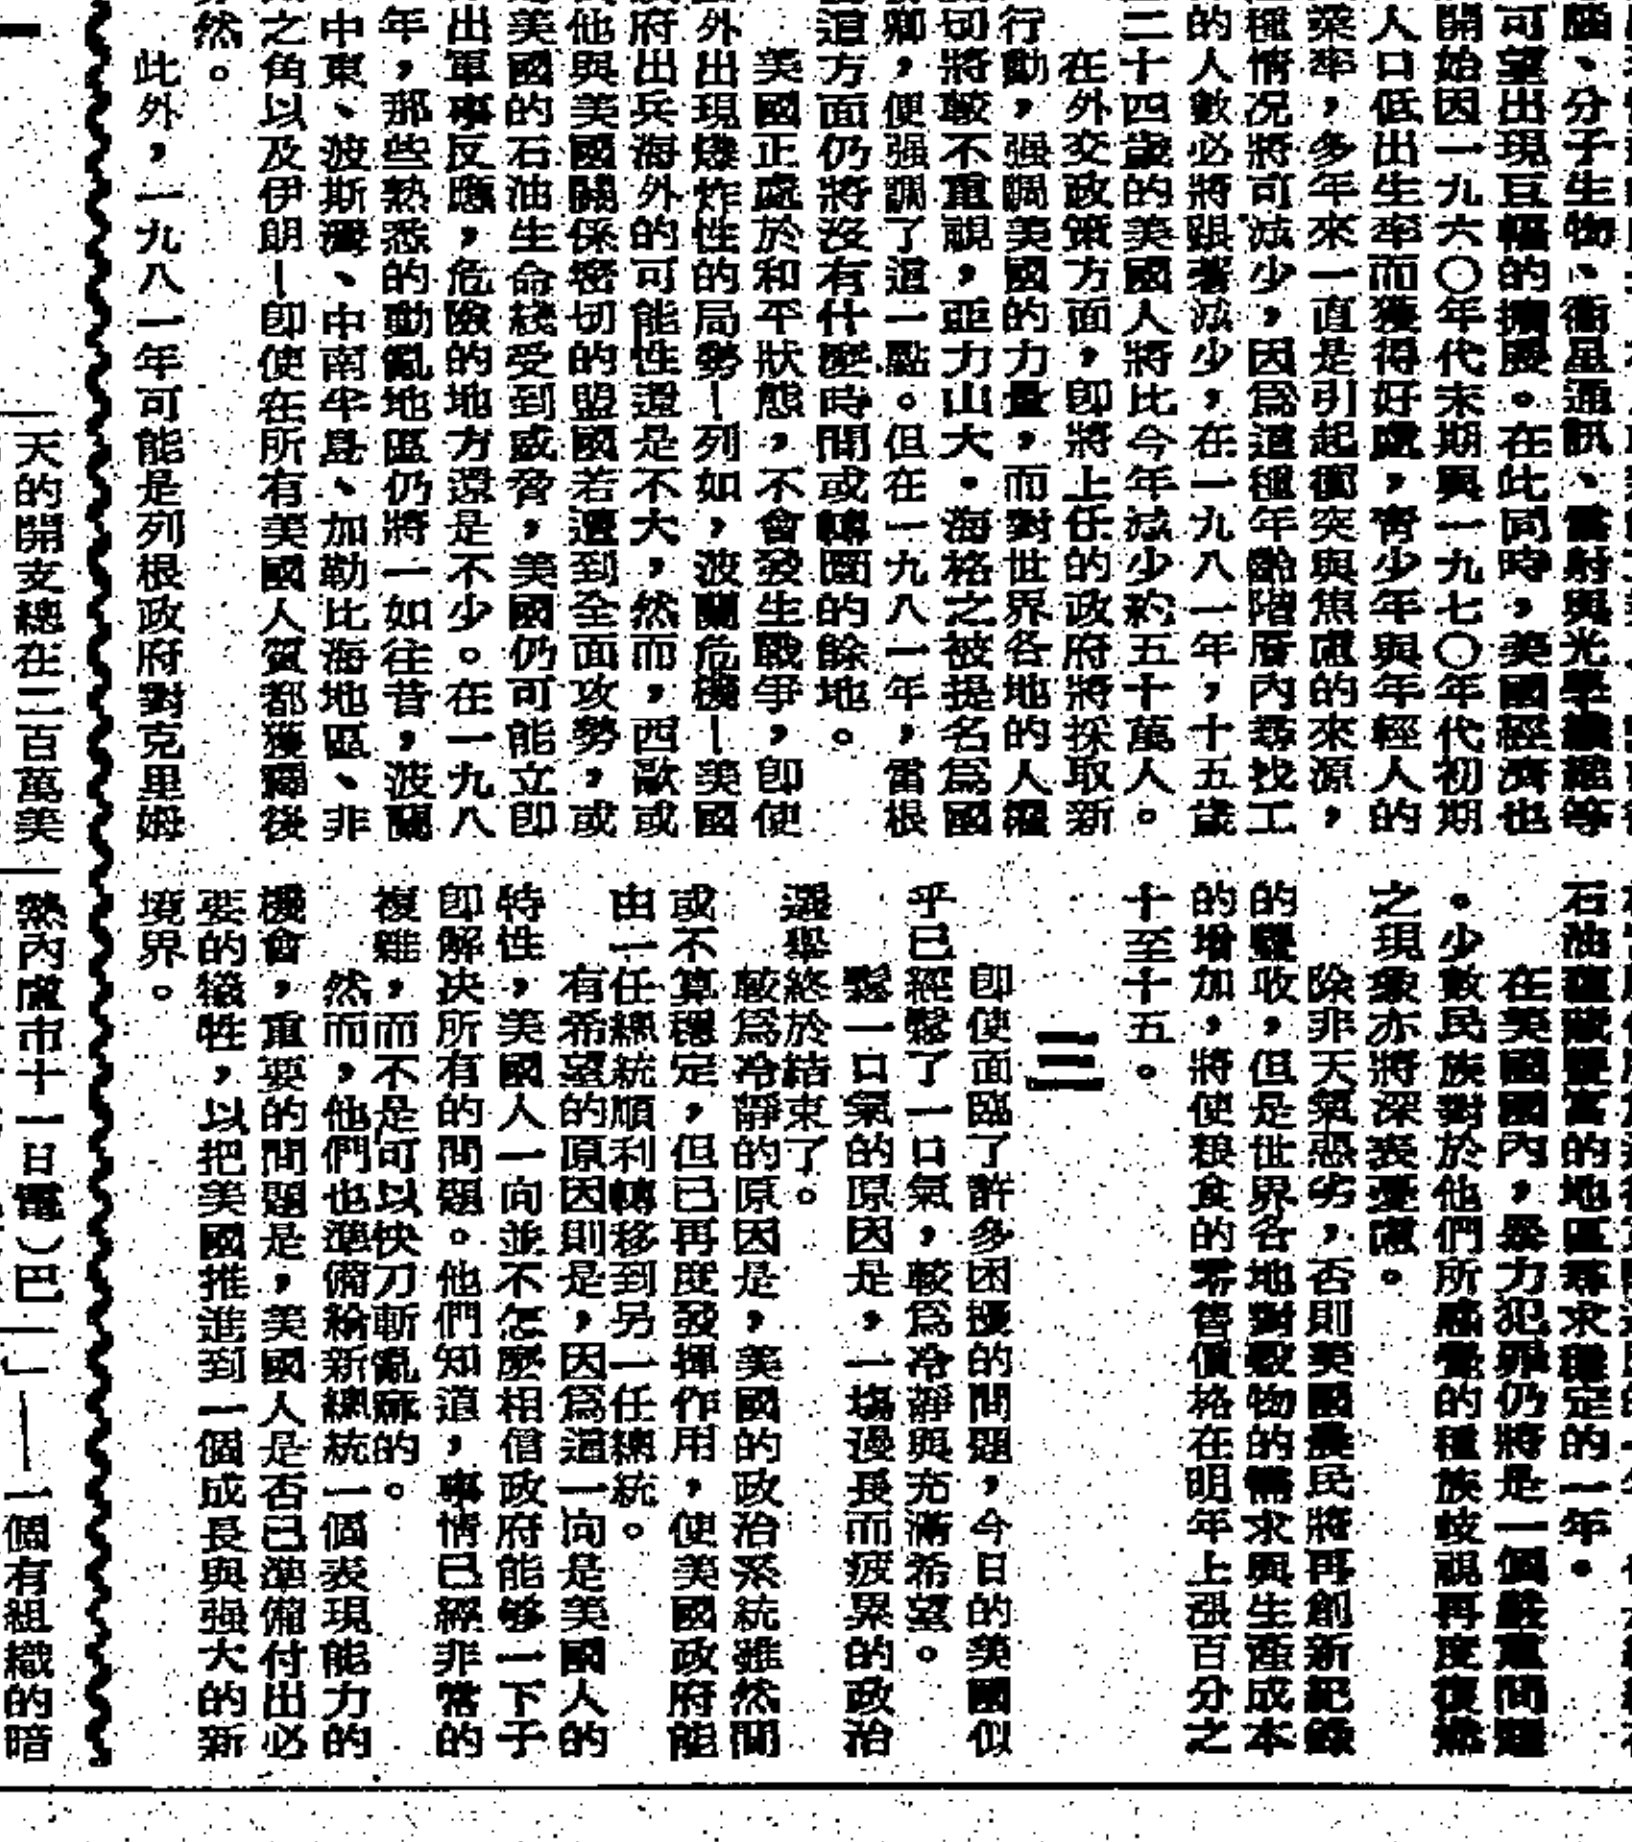 腦、分子生物、衞星通訊、雷射與光學纖維等
可望出現巨幅的擴展。在此同時，美國經濟也
開始因一九六〇年代末期與一九七〇年代初期
人口低出生率而獲得好處，青少年與年輕人的
率，多年來一直是引起衝突與焦慮的來源，
種情况將可减少，因爲這種年齡階層內尋找工
的人數必將跟著减少，在一九八一年，十五歲
二十四歲的美國人將比今年减少約五十萬人。
在外交政策方面，卽將上任的政府將採取新
行動，强調美國的力量，而對世界各地的人權
切將較不重視，亞力山大·海格之被提名爲國
卿，便强調了這一點。但在一九八一年，雷根
這方面仍將沒有什麼時間或轉圜的餘地。
美國正處於和平狀態，不會發生戰爭，卽使
外出現爆炸性的局勢—列如，波蘭危機—美國
府出兵海外的可能性還是不大，然而，西歐或
他與美國關係密切的盟國若遭到全面攻勢，或
美國的石油生命綫受到威脅，美國仍可能立卽
出軍事反應，危險的地方還是不少。在一九八
年，那些熱悉的動亂地區仍將一如往昔，波蘭
中東、波斯灣、中南半島、加勒比海地區、非
之角以及伊朗—卽使在所有美國人質都獲釋後
然。
此外，一九八一年可能是列根政府對克里姆
石油蘊藏豐富的地區尋求穩定的一年。
在美國國內，暴力犯罪仍將是一個嚴重問題
。少數民族對於他們所感覺的種族歧視再度復燃
之現象亦將深表憂慮。
除非天氣惡劣，否則美國農民將再創新紀錄
的豐收，但是世界各地對穀物的需求與生產成本
的增加，將使粮食的零售價格在明年上漲百分之
十至十五。
三
卽使面臨了許多困擾的問題，今日的美國似
乎已經鬆了一口氣，較爲冷靜與充滿希望。
鬆一口氣的原因是，一塲漫長而疲累的政治
選舉終於結束了。
較爲冷靜的原因是，美國的政治系統雖然間
或不算穩定，但已再度發揮作用，使美國政府能
由一任總統順利轉移到另一任總統。
有希望的原因則是，因爲這一向是美國人的
特性，美國人一向並不怎麼相信政府能够一下子
卽解决所有的問題。他們知道，事情已經非常的
複雜，而不是可以快刀斬亂麻的。
然而，他們也準備給新總統一個表現能力的
機會，重要的問題是，美國人是否已準備付出必
要的犧牲，以把美國推進到一個成長與强大的新
境界。
天的開支總在二百萬美
熱內盧市十一日電）巴
一個有組織的暗